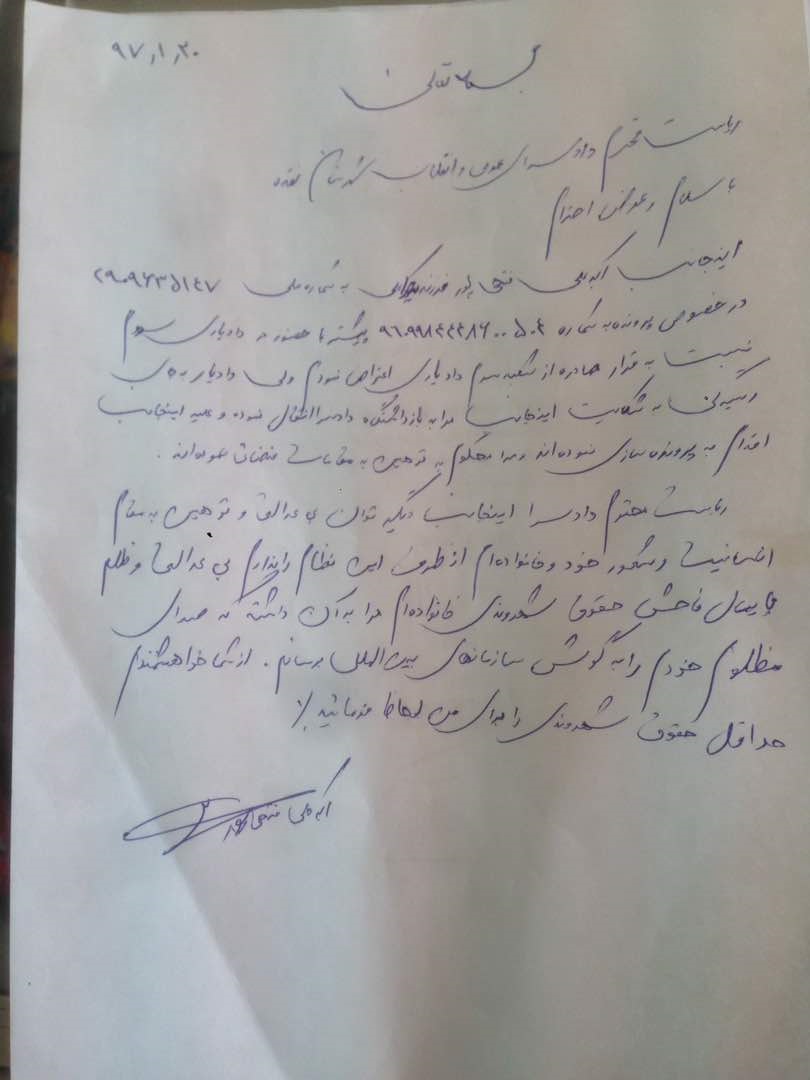 ۹۷٫۱٫۲۰
بسمه تعالی
ریاست محترم دادسرای عمومی و انقلاب شهرستان نقده
با سلام و عرض احترام
اینجانب فتحی پور فرزند به شماره ملی ۲۹۰۹۶۳۵۱۴۷
در خصوص پرونده به شماره پیشتر با حضور در دادیاری سوم
نسبت به قرار صادره از شعبه سوم دادیاری اعتراض نمودم ولی دادیار به جای
رسیدگی به شکایت اینجانب مرا به بازداشتگاه دادسرا انتقال نموده و علیه اینجانب
اقدام به پرونده سازی نموده اند و مرا محکوم به توهین به مقامات قضات نموده اند .
ریاست محترم دادسرا اینجانب دیگر توان بی عدالتی و توهین به مقام
انسانیت و شعور خود و خانواده ام از طرف این نظام را ندارم بی عدالتی و ظلم
پایمال فاحش حقوق شهروندی خانواده ام مرا به آن داشته که صدای
مظلوم خودم را به گوش سازمانهای بین الملل برسانم . از شما خواهشمندم
حداقل حقوق شهروندی را برای من لحاظ فرمائید .
فتحی پور